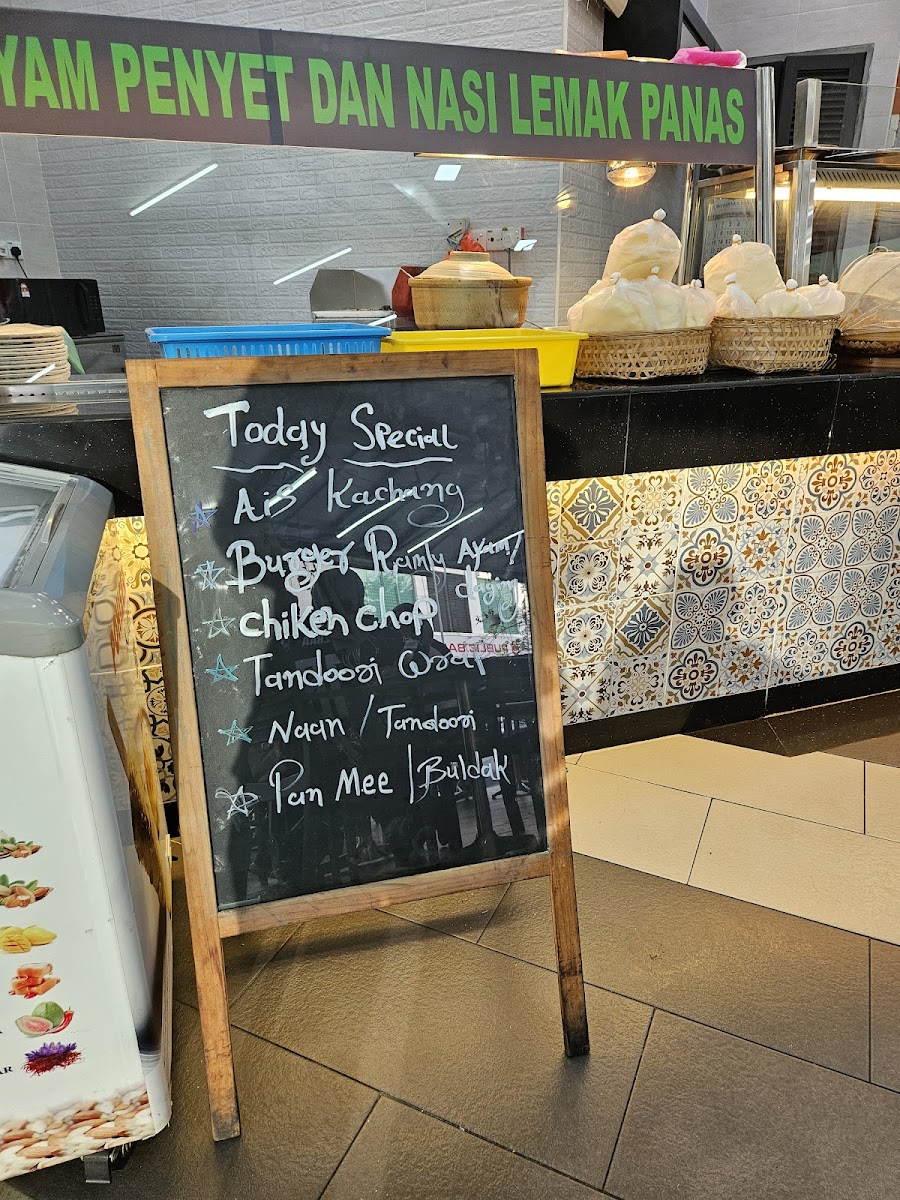 YAM PENYET DAN NASI LEMAK PANAS
Today Special
Ais Kachang
Burger Ramly Ayam/
daging
chiken chop
Tandoori Wrap
Naan / Tandoori
Pan Mee | Buldak